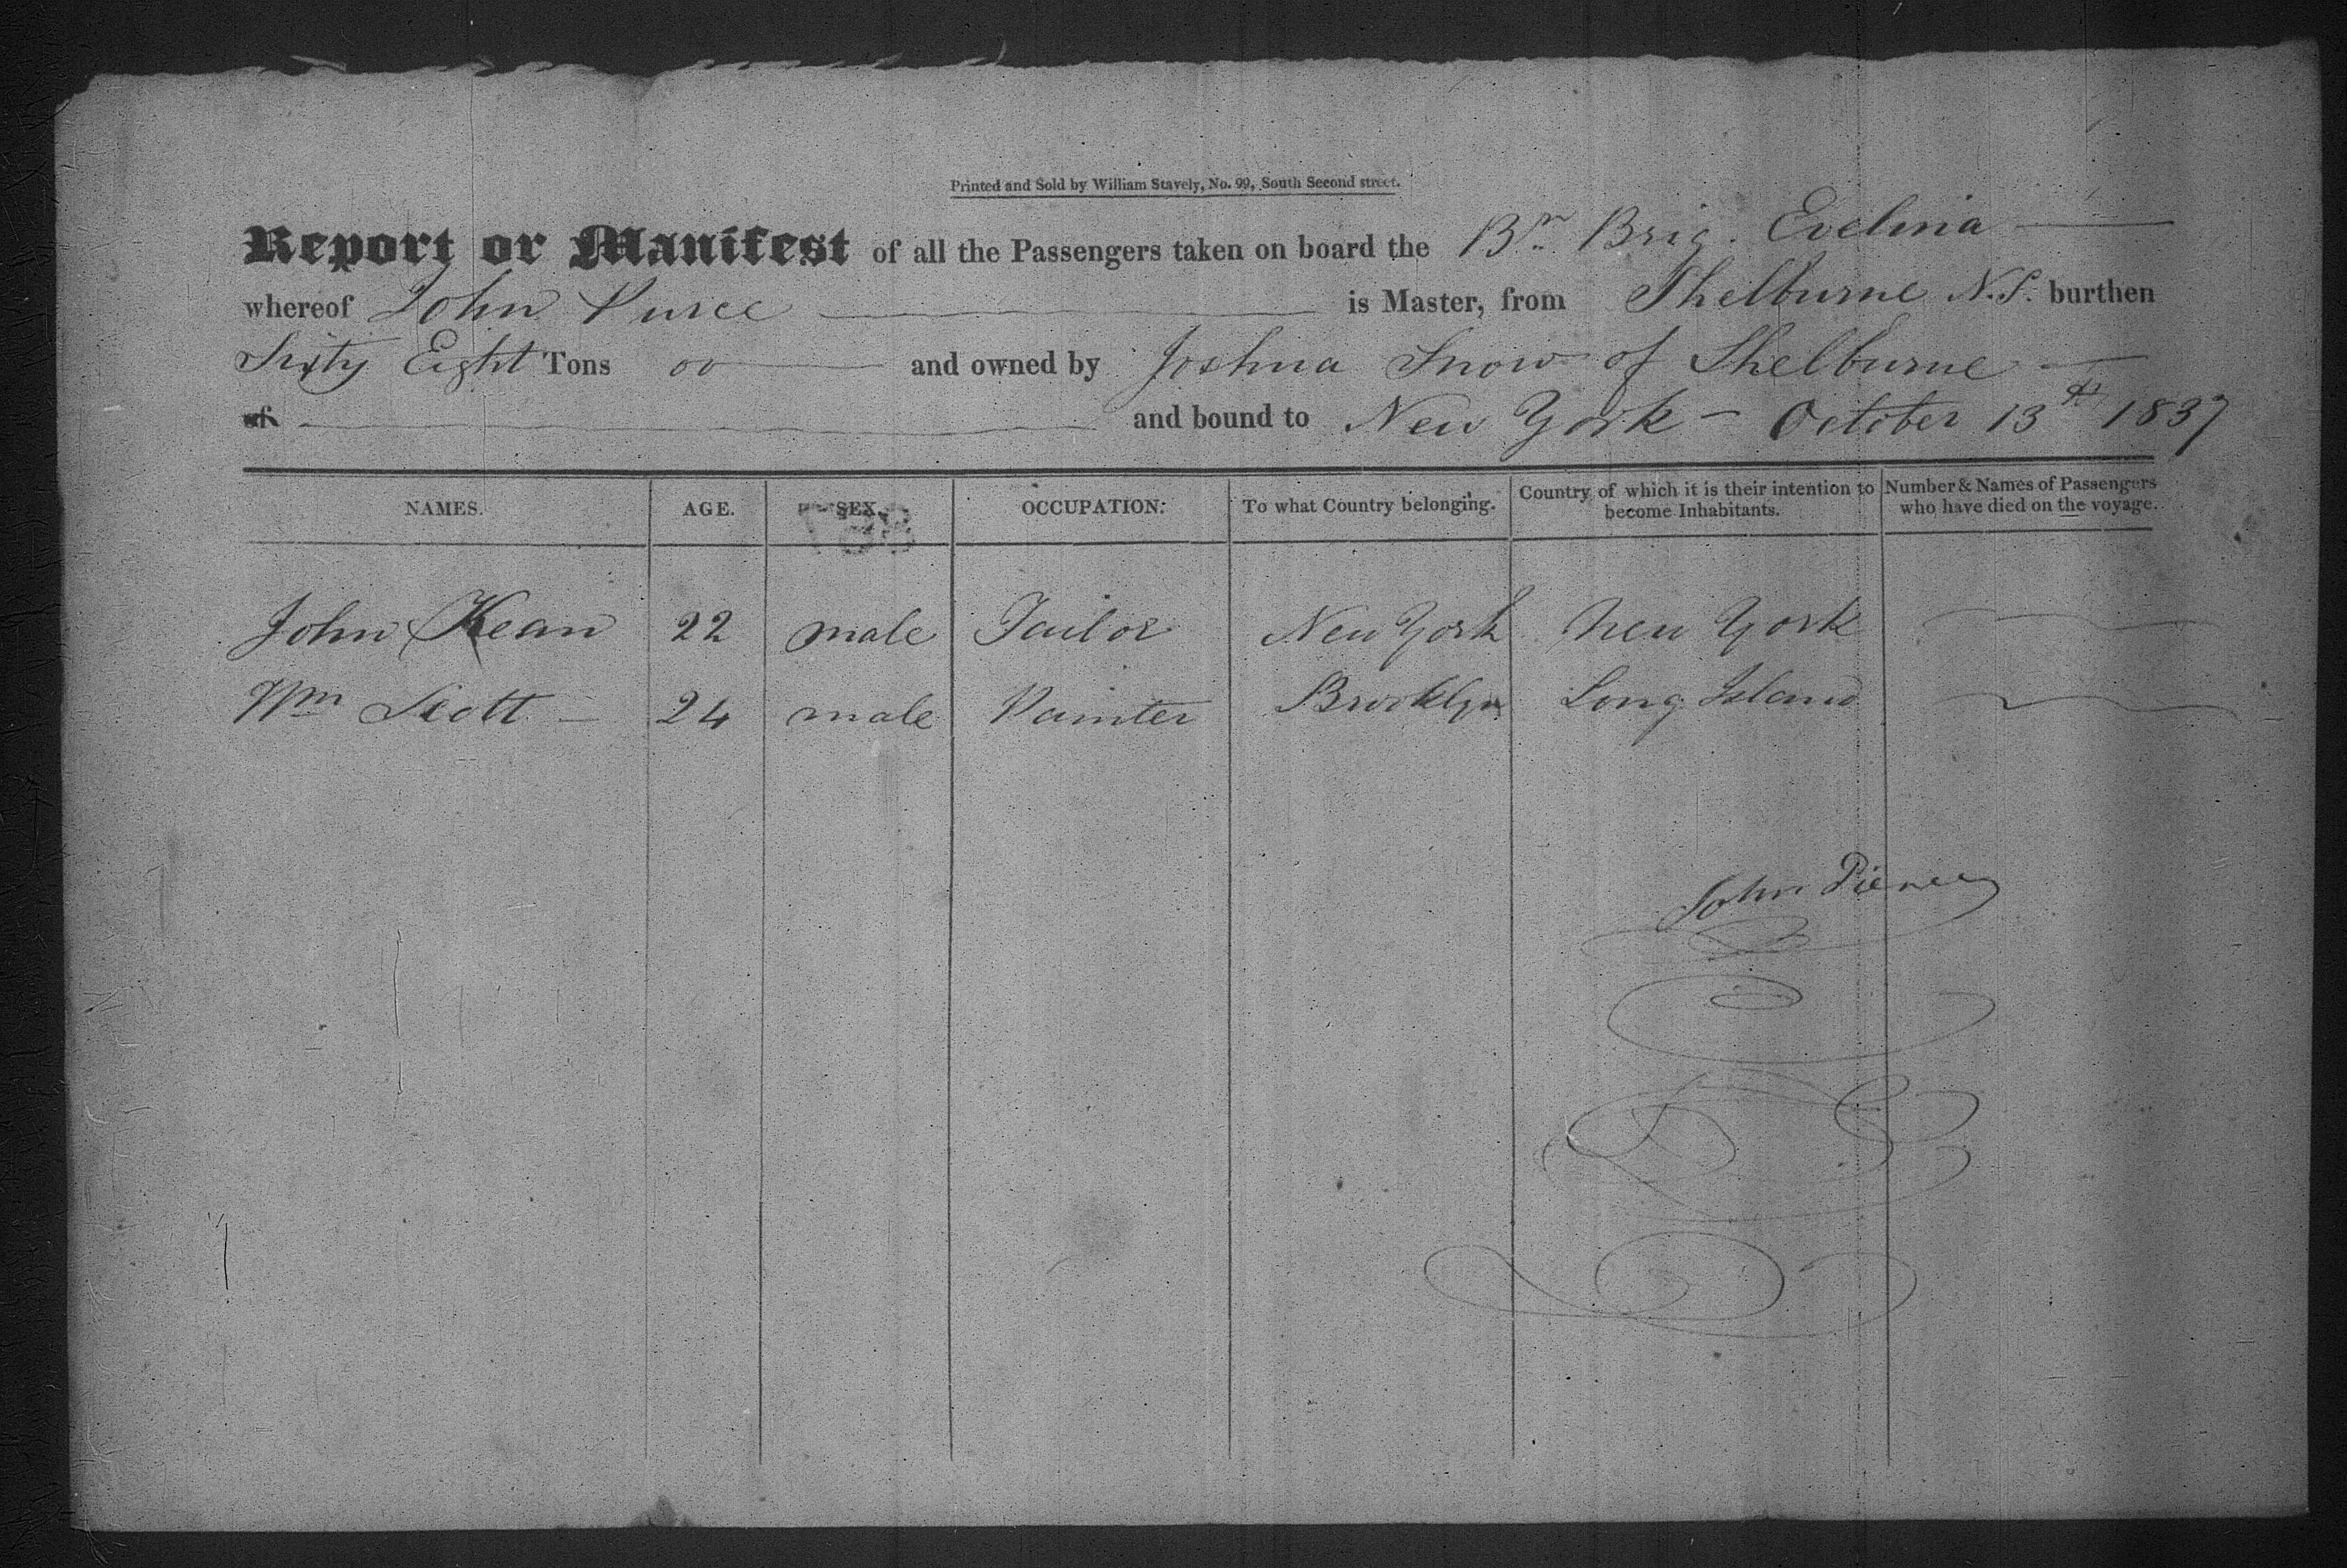 Printed and Sold by William Stavely, No. 99, South Second street.
Report or Manifest of all the Passengers taken on board the Br. Brig. Evelina
whereof John Pierce is Master, from Shelburne N.S. burthen
Sixty Eight Tons 00 and owned by Joshua Snow of Shelburne
of and bound to New York - October 13th 1837
NAMES. AGE. SEX. OCCUPATION. To what Country belonging. Country of which it is their intention to become Inhabitants. Number & Names of Passengers who have died on the voyage.
John Kean 22 male Tailor New York New York
Wm Scott 24 male Painter Brooklyn Long Island
John Pierce